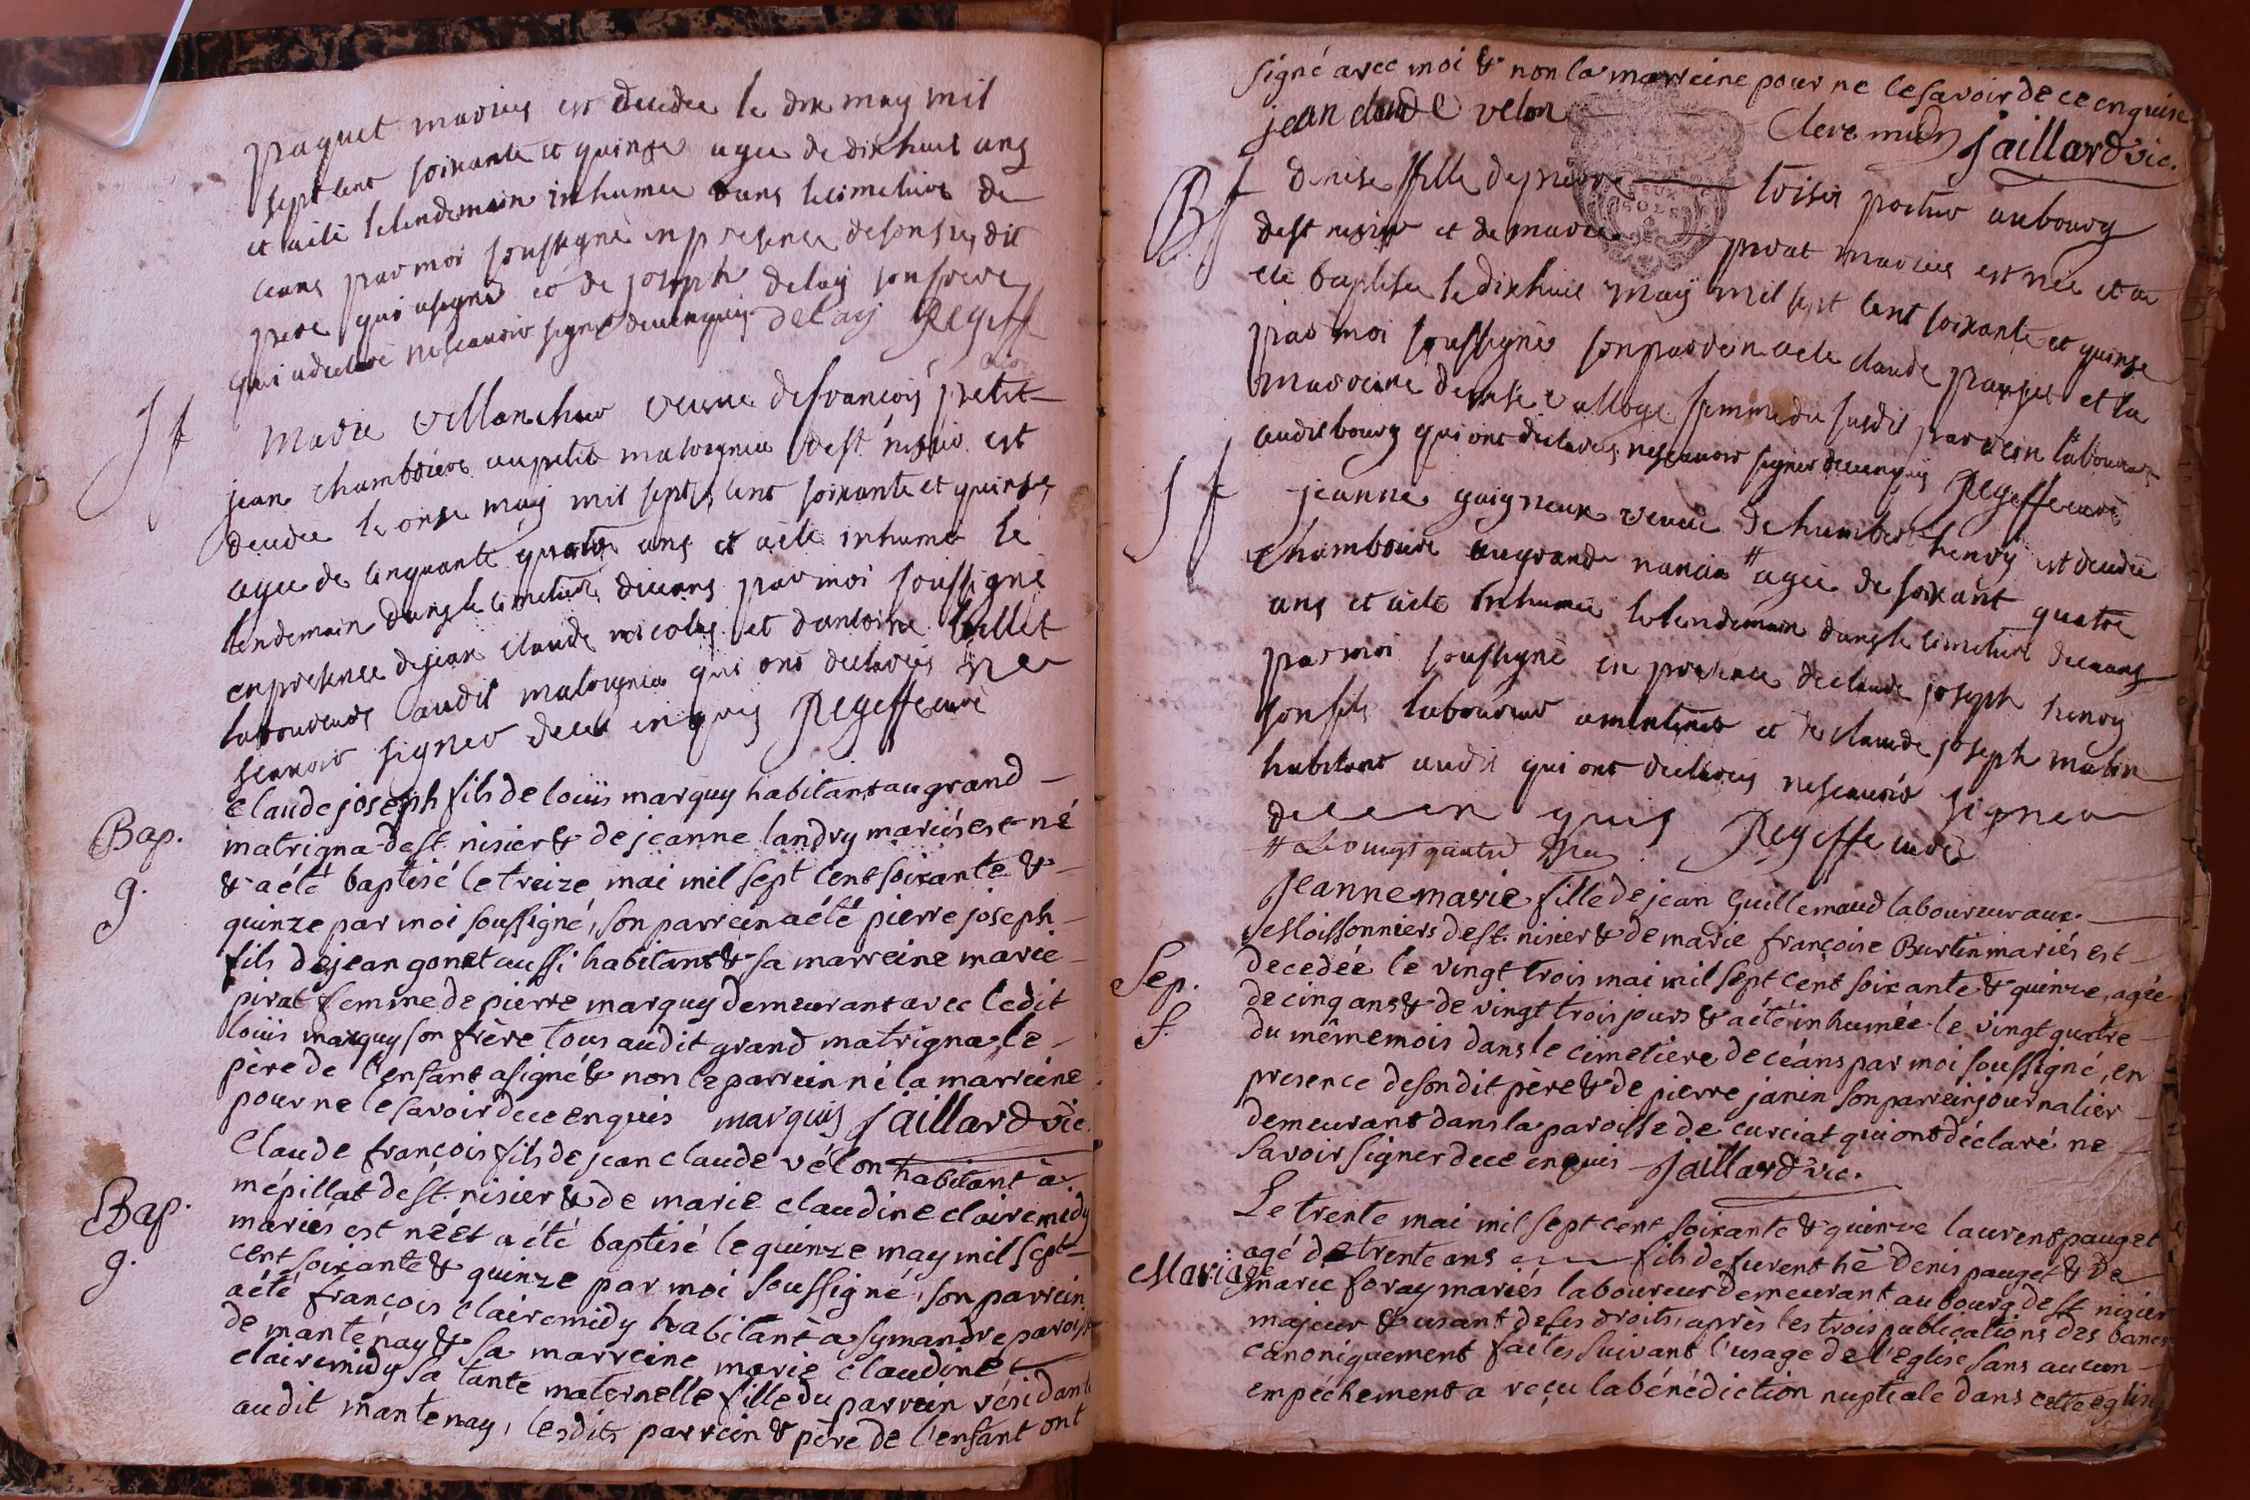 paquet mariés est decedee le dix may mil
sept cent soixante et quinze agee de dixhuit ans
et a ete le lendemain inhumee dans le cimetiere de
ceans par moi soussigné en presence de son susdit
pere qui a signé et de joseph delay son frere
qui a declaré ne scavoir signer de ce enquis delay Regeffe
curé
Sf
Marie villancher veuve de francois petit
jean chamboiere au petit matrignia de st nisier est
decedee le onze may mil sept cent soixante et quinze
agee de cinquante quatre ans et a ete inhumé le
lendemain dans le cimetiere de ceans par moi soussigné
en presence de jean claude nicolas et d'antoine billet
laboureurs audit matrignia qui ont declarés ne
scavoir signer de ce enquis Regeffe curé
Bap.
g.
Claude joseph fils de loüis marquy habitant au grand
matrigna de st. nisier & de jeanne landry mariés est né
& a été baptisé le treize mai mil sept cent soixante &
quinze par moi soussigné, son parrein a été pierre joseph
fils de jean gonet aussi habitant & sa marreine marie
pirat femme de pierre marquy demeurant avec ledit
loüis marquy son frère tous audit grand matrigna, le
père de l'enfant a signé & non le parrein né la marreine
pour ne le savoir de ce enquis marquis jaillard vic.
Bap.
g.
Claude françois fils de jean claude vélon habitant à
mépillat de st. nisier & de marie claudine clairemidy
mariés est né et a été baptisé le quinze may mil sept
cent soixante & quinze par moi soussigné, son parrein
a été françois clairemidy habitant à symandre paroisse
de manténay & sa marreine marie claudine
clairemidy sa tante maternelle fille du parrein résidante
audit mantenay, lesdits parrein & père de l'enfant ont
signé avec moi & non la marreine pour ne le savoir de ce enquise
jean claude velon Clere midy jaillard vic.
Bf
denise fille de pierre loisy poetier au bourg
de st nisier et de marie pirat mariés est née et a
ete baptisee le dixhuit may mil sept cent soixante et quinze
par moi soussigné son parrein a ete claude pauget et la
marreine denise alloge femme du susdit parrein laboureur
audit bourg qui ont declarés ne scavoir signer de ce enquis Regeffe curé
Sf
jeanne guigneux veuve de humbert henry est decedee
chamboiere au grand nancin # agee de soixant quatre
ans et a ete inhumée le lendemain dans le cimetiere de ceans
par moi soussigné en presence de claude joseph henry
son fils laboureur a mentenet et de claude joseph matin
habitant audit qui ont declarés ne scavoir signer
de ce en quis Regeffe curé
# Le vingt quatre may
Sep.
f.
Jeanne marie fille de jean Guillemaud laboureur aux
Moissonniers de st. nisier & de marie françoise Burtin mariés est
decedée le vingt trois mai mil sept cent soixante & quinze, agée
de cinq ans & de vingt trois jours & a été inhumée le vingt quatre
du même mois dans le cimetiere de céans par moi soussigné, en
presence de son dit père & de pierre janin son parrein journalier
demeurant dans la paroisse de curciat qui ont déclaré ne
savoir signer de ce enquis jaillard vic.
Mariage
Le trente mai mil sept cent soixante & quinze laurent pauget
agé de trente ans fils de furent hé Denis pauget & de
marie foray mariés laboureur demeurant au bourg de st nisier
majeur & usant de ses droits, après les trois publications des bancs
canoniquement faites suivant l'usage de l'eglise sans aucun
empéchement a reçu la bénédiction nuptiale dans cette eglise